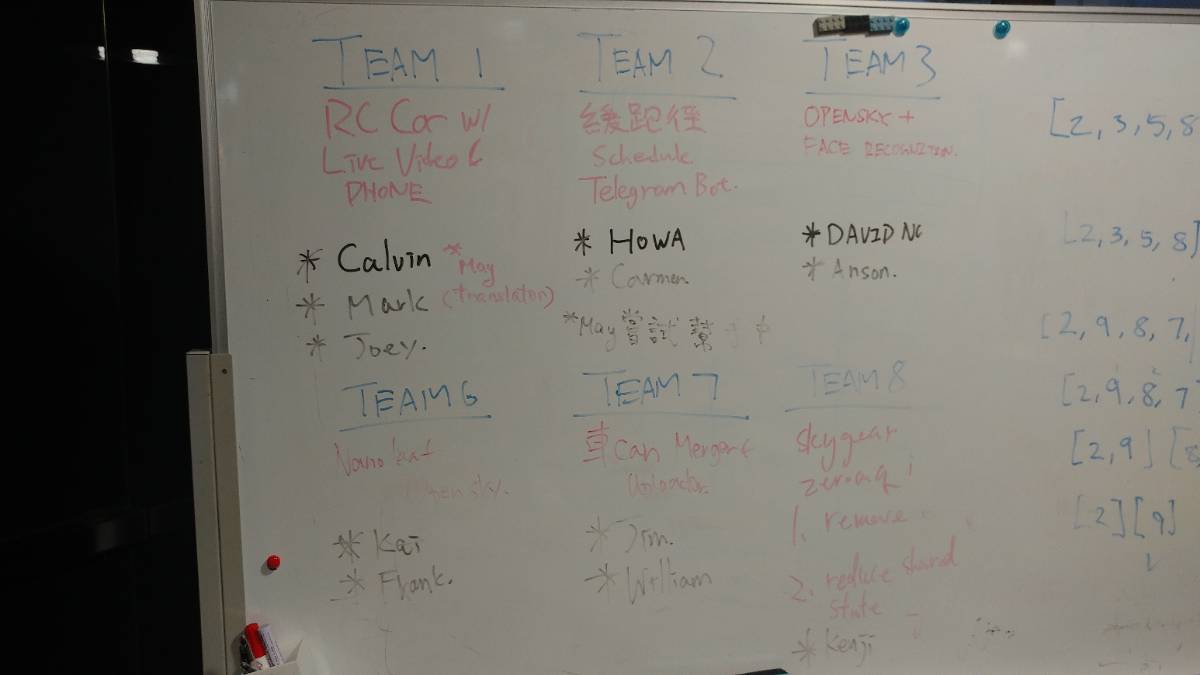 TEAM 1
RC Car w/
Live Video &
PHONE
* Calvin
* May
(translator)
* Mark
* Joey.
TEAM 2
緩跑徑
Schedule
Telegram Bot.
* HOWA
* Carmen.
*May嘗試幫手中
TEAM 3
OPENSKY +
FACE RECOGNITION.
* DAVID NG
* Anson.
TEAM 6
Nano
* Kai
* Frank.
TEAM 7
車Cam Merger &
Uploader.
* Jim.
* William
TEAM 8
skygear
zeromq
1. remove
2. reduce shared
state
* Kenji
[2, 3, 5, 8
[2, 3, 5, 8]
[2, 9, 8, 7,
[2, 9, 8, 7
[2, 9] [8
[2] [9]